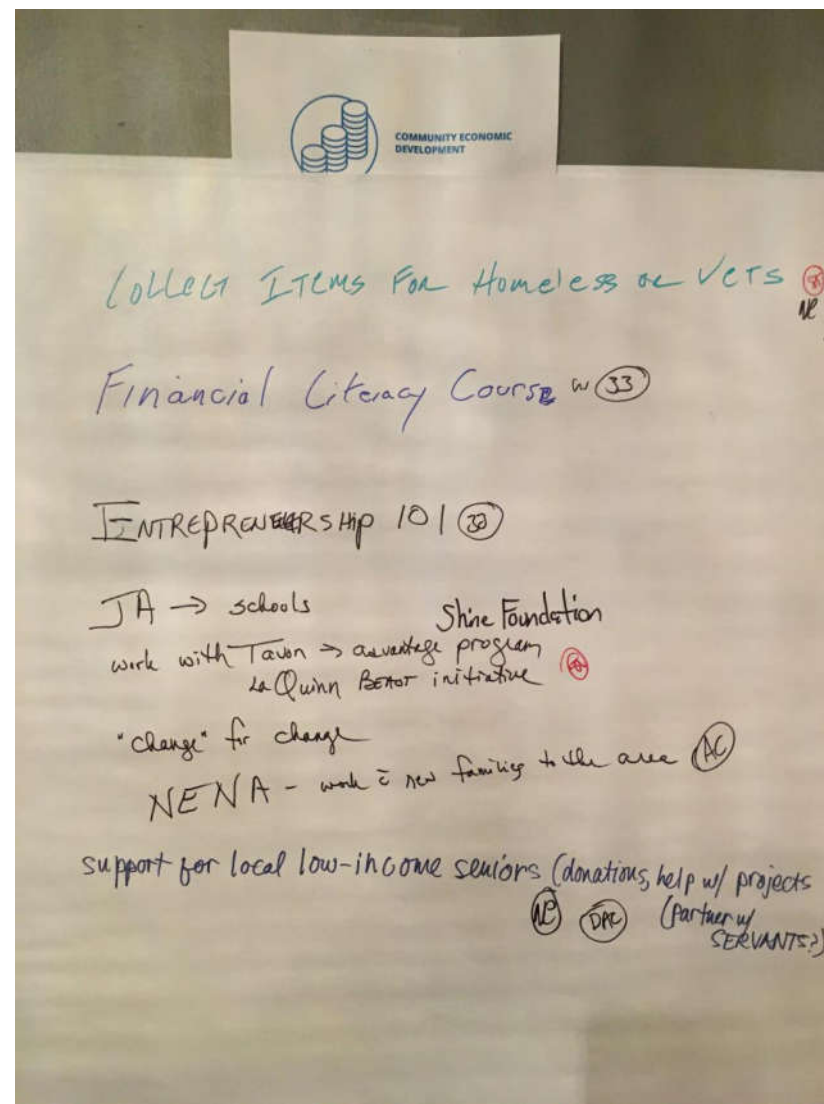 COMMUNITY ECONOMIC
DEVELOPMENT
Collect Items For Homeless or Vets
NE
Financial Literacy Course w 33
ENTREPRENEURSHIP 101
JA → schools
Shine Foundation
work with Tavon → advantage program
La Quinn initiative
"change" for change
NENA - work c̄ new families to the area AC
support for local low-income seniors (donations, help w/ projects
NE DPC (partner w/
SERVANTS?)